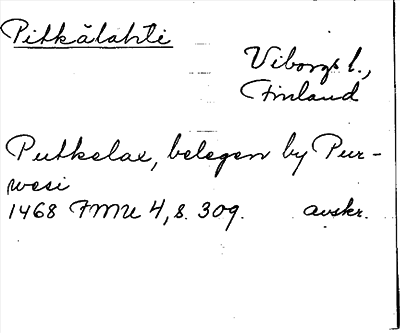 Pitkälahti
Viborgs l.,
Finland
Putkelax, belegen by Pur-
wesi
1468 FMU 4, s. 309. avskr.